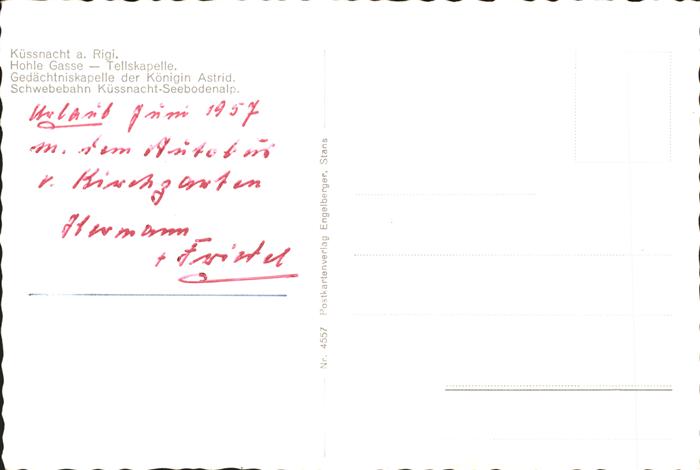 Küssnacht a. Rigi.
Hohle Gasse — Tellskapelle.
Gedächtniskapelle der Königin Astrid.
Schwebebahn Küssnacht-Seebodenalp.
Urlaub Juni 1957
m. dem Autobus
v. Kirchgarten
Hermann
+ Friedel
Nr. 4557 Postkartenverlag Engelberger, Stans